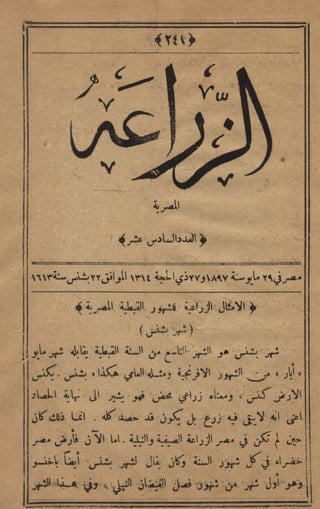 ﴿ ٢٤١ ﴾
الزراعه
المصرية
﴿ العدد السادس عشر ﴾
مصر في ٢٩ مايو سنة ١٨٩٧ و٢٧ ذي الحجة ١٣١٤ الموافق ٢٢ بشنس سنة ١٦١٣
﴿ الامثال الزراعية فشهور القبطية المصرية ﴾
( شهر بشنس )
شهر بشنس هو الشهر التاسع من السنة القبطية يقابله شهر مايو
« أيار » من الشهور الافرنجية ومثله العامي هكذا « بشنس . يكنس
الارض كنس » ومعناه زراعي محض فهو يشير الى نهاية الحصاد
اعنى انه لايبقى فيه زرع بل يكون قد حصد كله . انما ذلك كان
حين لم تكن في مصر الزراعة الصيفية والنيلية . اما الآن فأرض مصر
خضراء في كل شهور السنة وكان يقال لشهر بشنس أيضاً باخنسو
وهو أول شهر من شهور فصل الفيضان النيلي . وفي هذا الشهر